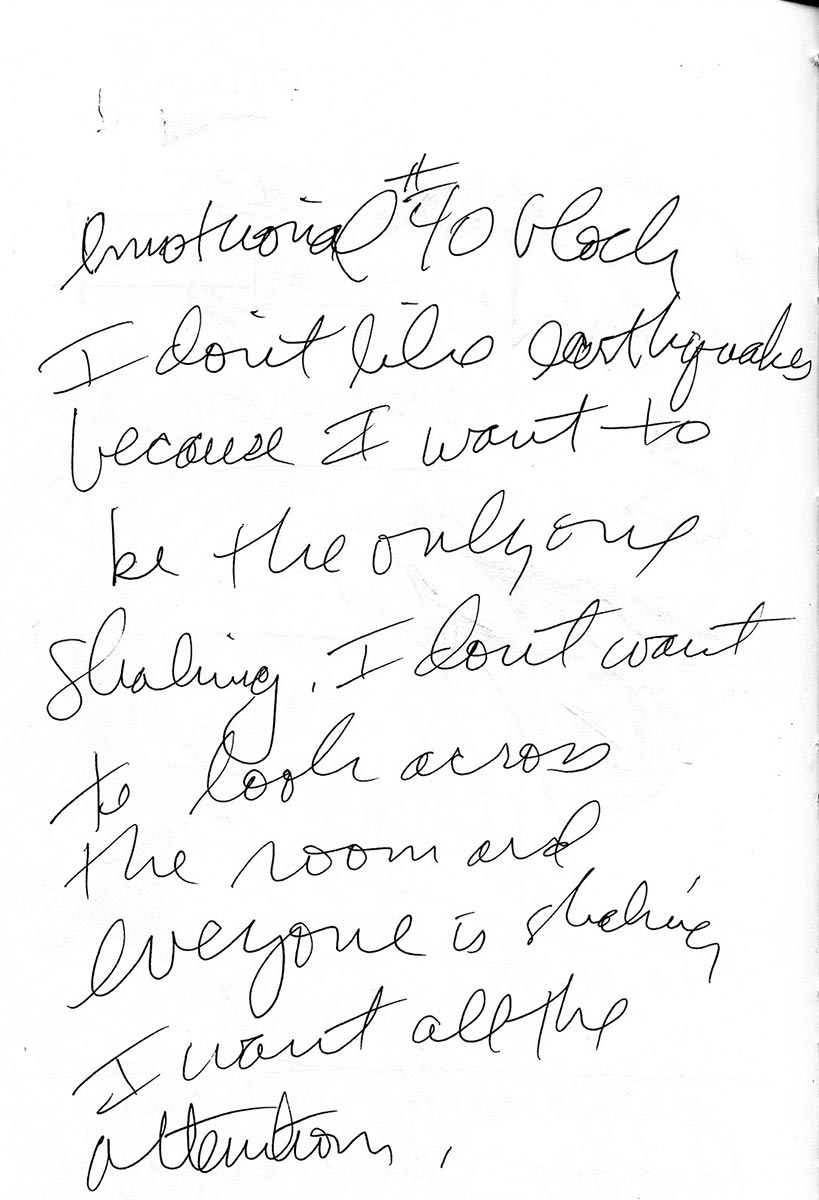 emotional #40 block
I don't like earthquakes
because I want to
be the only one
shaking. I dont want
to look across
the room and
everyone is shaking
I want all the
attention.